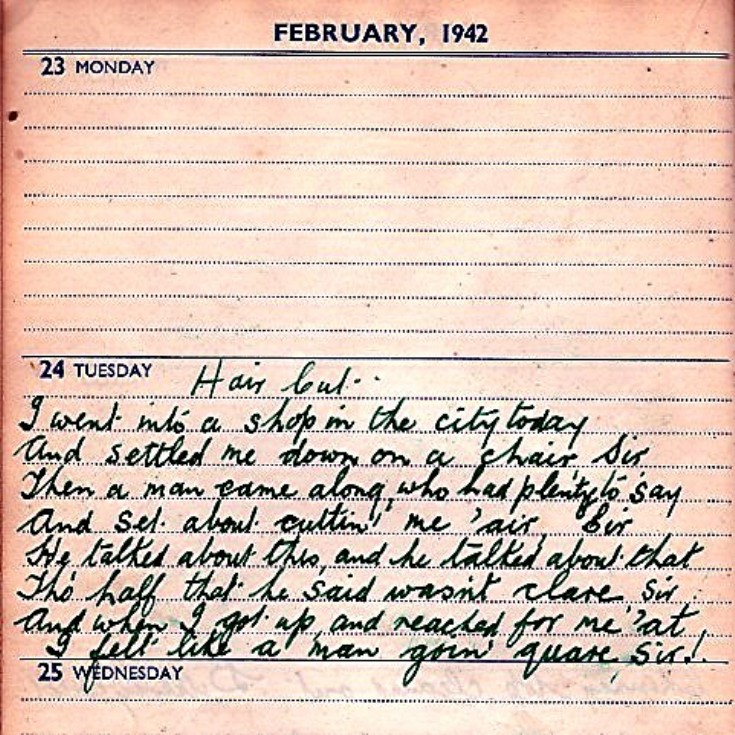 FEBRUARY, 1942
23 MONDAY
24 TUESDAY Hair Cut..
I went into a shop in the city today
And settled me down on a chair Sir
Then a man came along, who had plenty to say
And set about cuttin' me 'air, Sir
He talked about this, and he talked about that
Tho' half that he said wasn't clare Sir.
And when I got up and reached for me 'at
I felt like a man goin' quare, Sir!.
25 WEDNESDAY